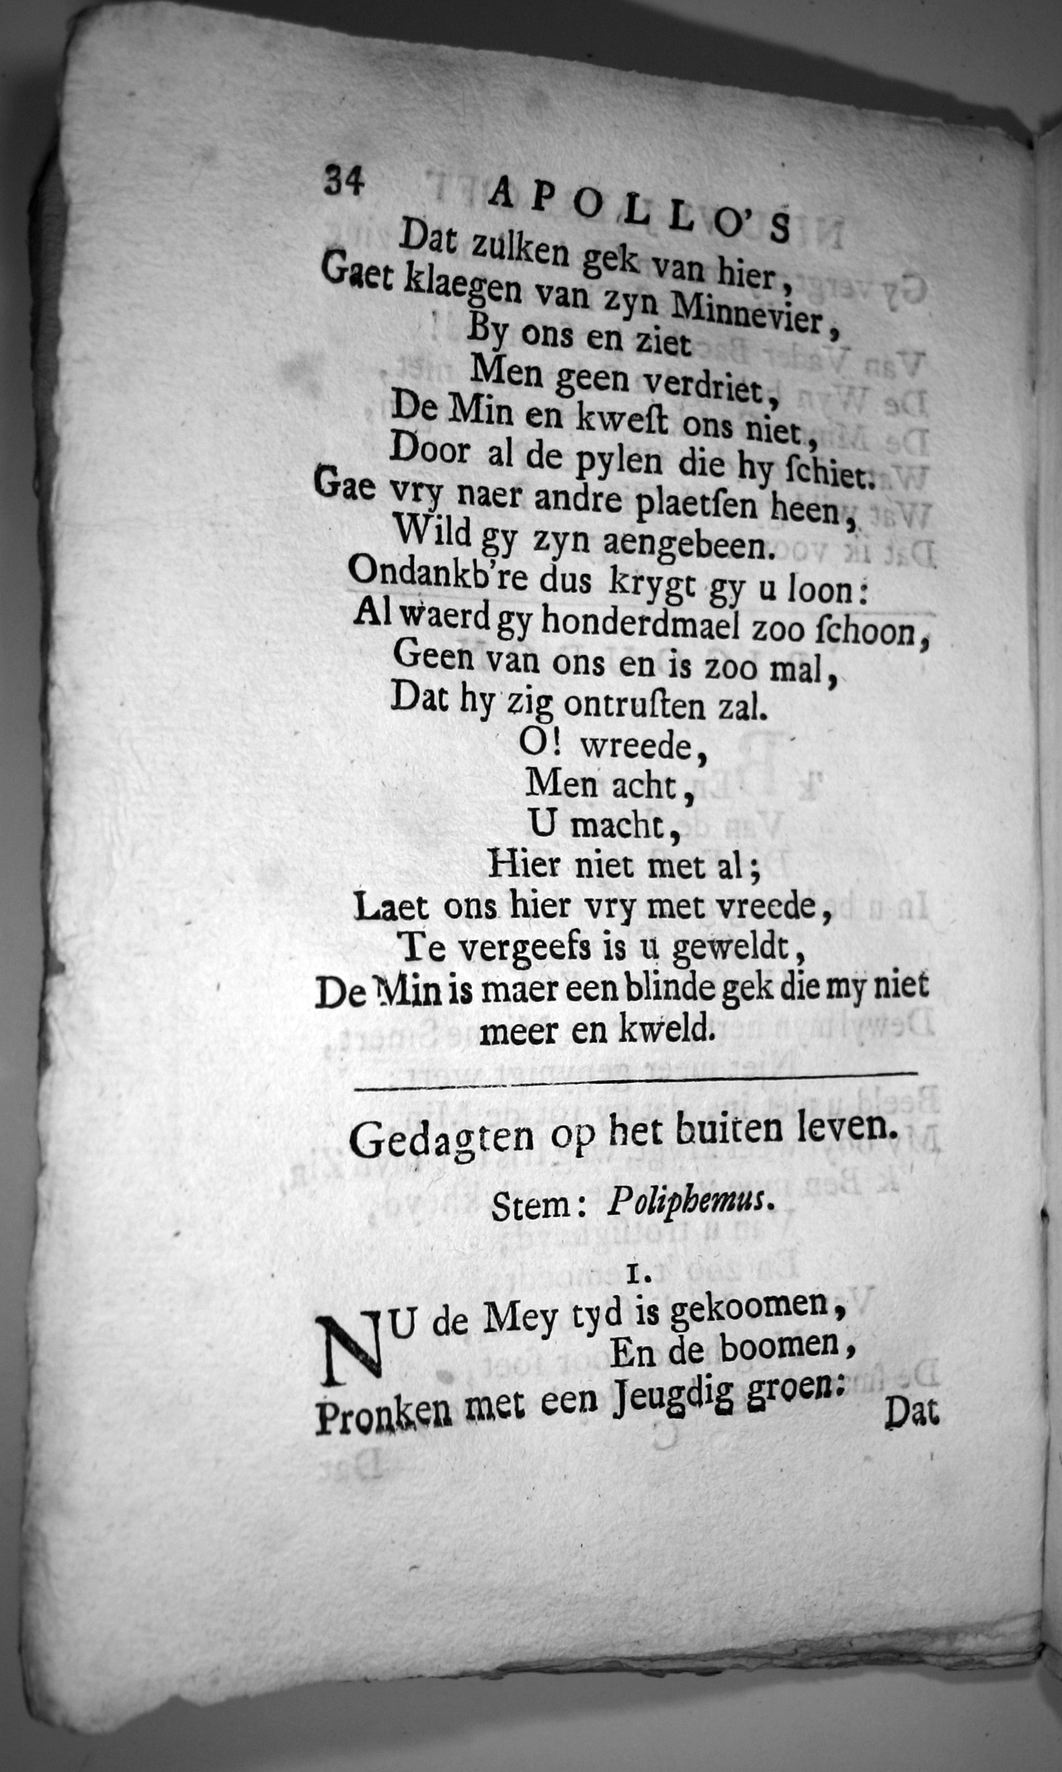 34 APOLLO'S
Dat zulken gek van hier,
Gaet klaegen van zyn Minnevier,
By ons en ziet
Men geen verdriet,
De Min en kweſt ons niet,
Door al de pylen die hy ſchiet.
Gae vry naer andre plaetſen heen,
Wild gy zyn aengebeen.
Ondankb're dus krygt gy u loon:
Al waerd gy honderdmael zoo ſchoon,
Geen van ons en is zoo mal,
Dat hy zig ontruſten zal.
O! wreede,
Men acht,
U macht,
Hier niet met al;
Laet ons hier vry met vreede,
Te vergeefs is u geweldt,
De Min is maer een blinde gek die my niet
meer en kweld.
Gedagten op het buiten leven.
Stem: Poliphemus.
1.
NU de Mey tyd is gekoomen,
En de boomen,
Pronken met een Jeugdig groen:
Dat